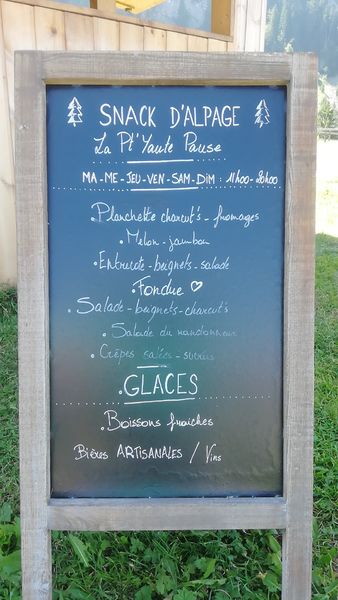 SNACK D'ALPAGE
La Pt'Yaute Pause
MA-ME-JEU-VEN-SAM-DIM : 11h00-20h00
.Planchette charcut's - fromages
.Melon-jambon
.Entrecote-beignets-salade
.Fondue ♡
.Salade-beignets-charcut's
.Salade du randonneur
.Crêpes salées-sucrées
.GLACES
.Boissons fraiches
Bières ARTISANALES / Vins